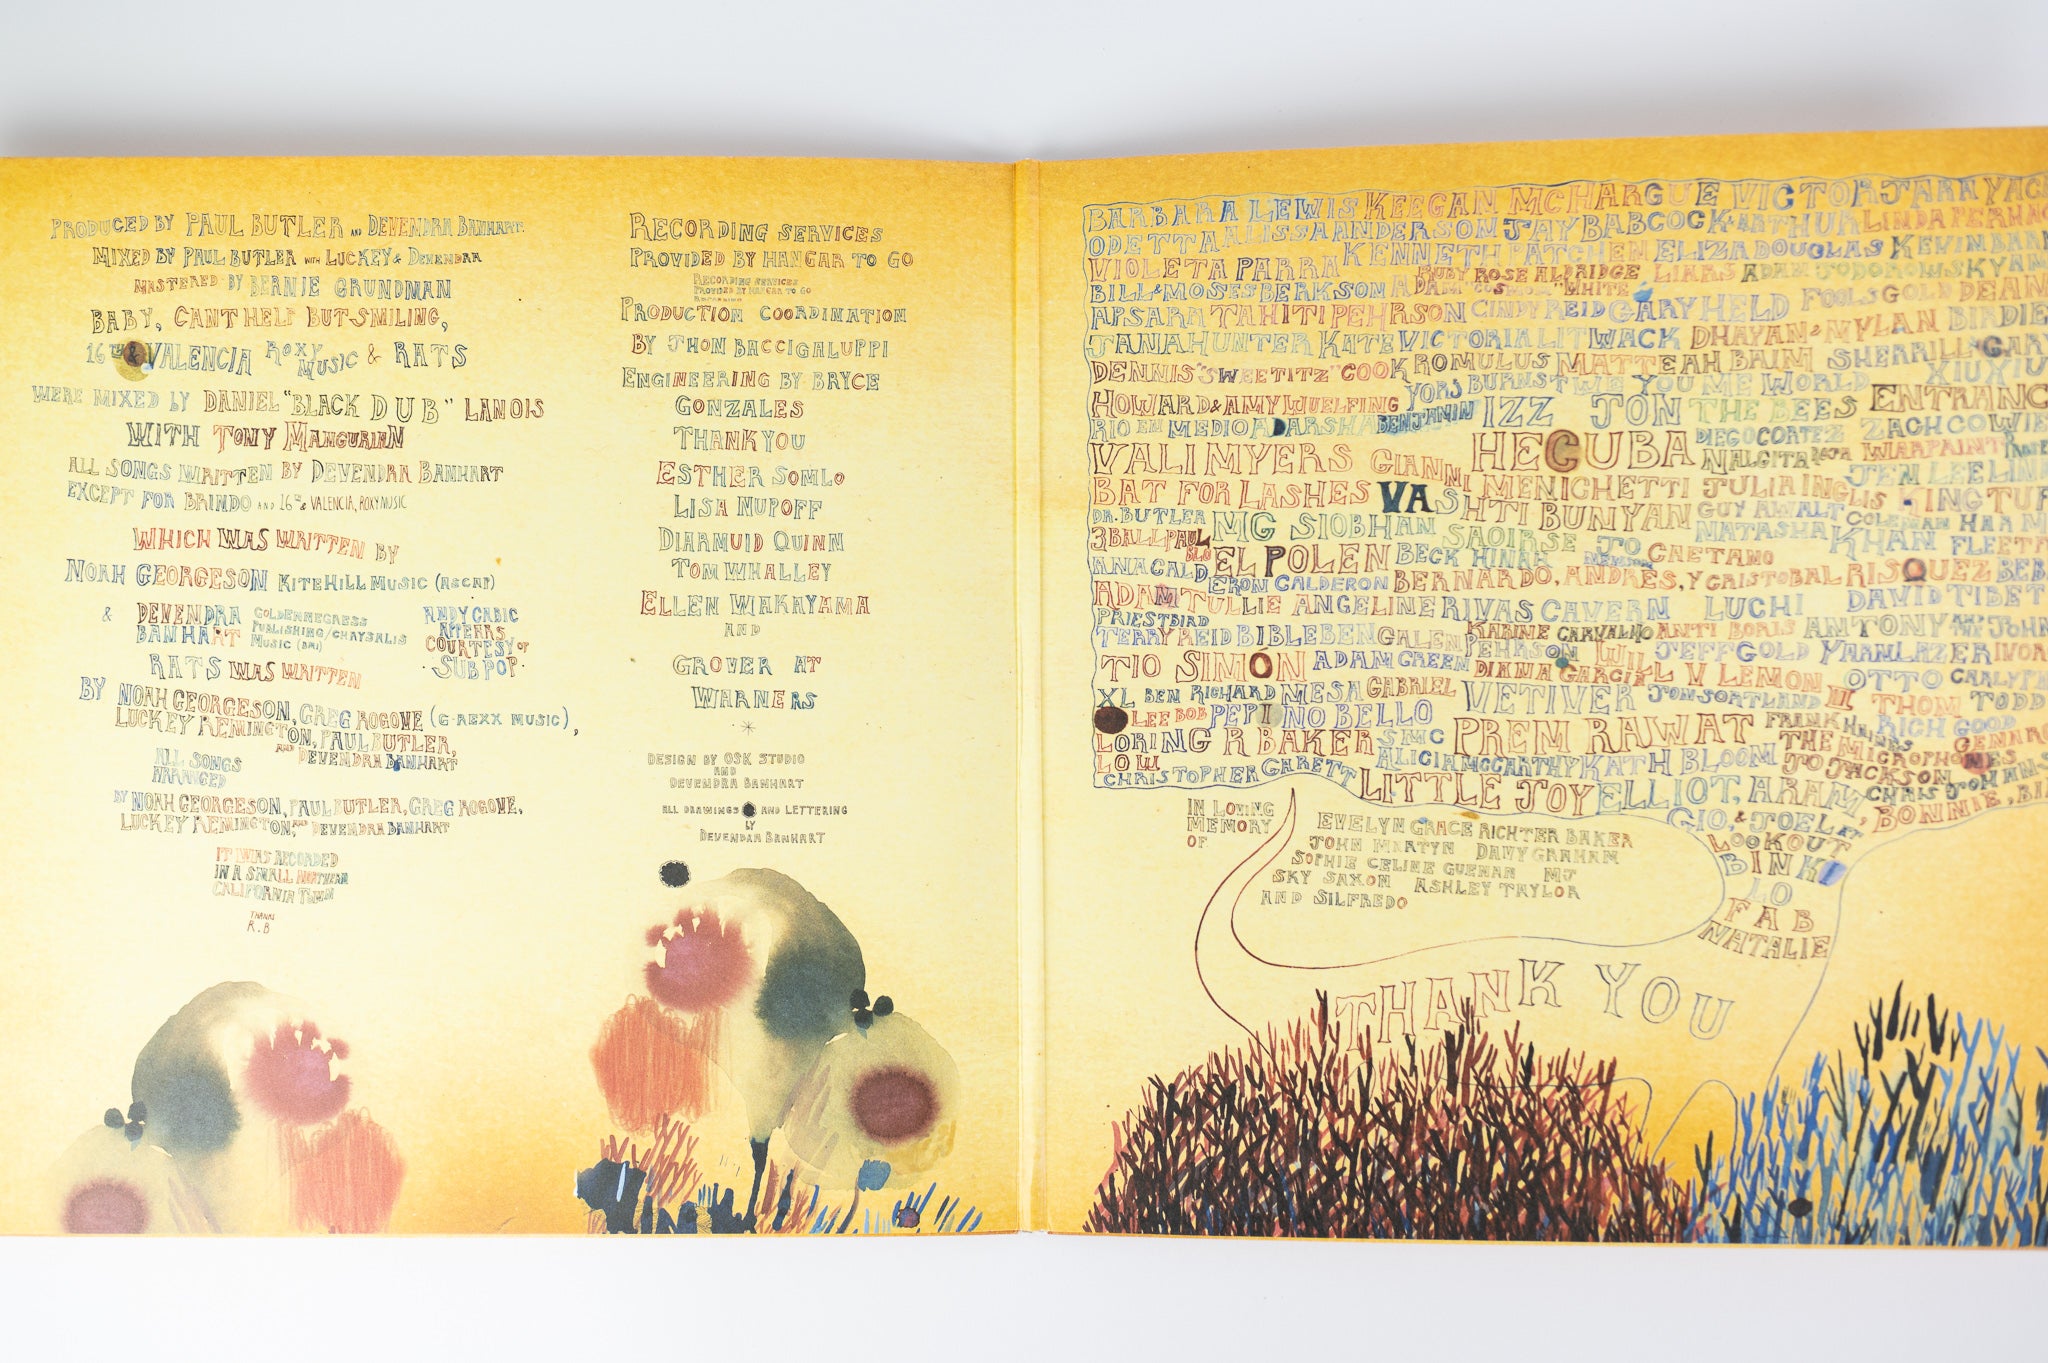 PRODUCED BY PAUL BUTLER AND DEVENDRA BANHART
MIXED BY PAUL BUTLER WITH LUCKEY & DEVENDRA
MASTERED BY BERNIE GRUNDMAN
BABY, CAN'T HELP BUT SMILING,
16TH & VALENCIA ROXY MUSIC & RATS
WERE MIXED BY DANIEL "BLACK DUB" LANOIS
WITH TONY MANGURIAN
ALL SONGS WRITTEN BY DEVENDRA BANHART
EXCEPT FOR BRINDO AND 16TH & VALENCIA, ROXY MUSIC
WHICH WAS WRITTEN BY
NOAH GEORGESON KITEHILL MUSIC (ASCAP)
& DEVENDRA BANHART GOLDENNEGRESS PUBLISHING/CHRYSALIS MUSIC (BMI)
ANDY CABIC APPEARS COURTESY OF SUB POP
RATS WAS WRITTEN
BY NOAH GEORGESON, GREG ROGOVE (G-REXX MUSIC),
LUCKEY REMINGTON, PAUL BUTLER,
AND DEVENDRA BANHART
ALL SONGS
ARRANGED
BY NOAH GEORGESON, PAUL BUTLER, GREG ROGOVE,
LUCKEY REMINGTON, AND DEVENDRA BANHART
IT WAS RECORDED
IN A SMALL NORTHERN
CALIFORNIA TOWN
THANKS
R.B
RECORDING SERVICES
PROVIDED BY HANGAR TO GO
RECORDING SERVICES
PROVIDED BY HANGAR TO GO
PRODUCTION COORDINATION
BY JHON BACCIGALUPPI
ENGINEERING BY BRYCE
GONZALES
THANKYOU
ESTHER SOMLO
LISA NUPOFF
DIARMUID QUINN
TOM WHALLEY
ELLEN WAKAYAMA
AND
GROVER AT
WARNERS
DESIGN BY OSK STUDIO
AND
DEVENDRA BANHART
ALL DRAWINGS AND LETTERING
BY
DEVENDRA BANHART
BARBARA LEWIS KEEGAN MCHARGUE VICTOR JARA
ODETTA ALISSA ANDERSON JAY BABCOCK & ARTHUR LINDA
VIOLETA PARRA KENNETH PATCHEN ELIZA DOUGLAS KEVIN
BILL & MOSES BERKSON RUBY ROSE ALDRIDGE LIARS ADAM JODOROWSKY
ADAM WHITE
APSARA TAHITI PEHRSON CINDY REID GARY HELD FOOLS GOLD
JANA HUNTER KATE VICTORIA LITWACK DHAYAN & MYLAN BIRDIE
DENNIS "SWEETITZ" COOK ROMULUS MATTEAH BAIM SHERRILL GARY
HOWARD & AMY WUELFING YORS BURNST WE YOU ME WORLD XIU XIU
RIO EN MEDIO ADARSHA BENJAMIN IZZ JON THE BEES
VALI MYERS GIANNI HECUBA DIEGO CORTEZ ZACH COWIE
NALGITA ROJA WARPAINT
MENICHETTI JULIA INGLIS JEN LEE
BAT FOR LASHES VASHTI BUNYAN GUY AWALT COLEMAN
DR. BUTLER MG SIOBHAN SAOIRSE JO NATASHA KHAN
3BALL PAUL EL POLEN BECK HINAH CAETANO
ANA CALDERON CALDERON BERNARDO, ANDRES, Y CRISTOBAL RISQUEZ
ADAM TULLIE ANGELINE RIVAS CAVERN LUCHI DAVID TIBET
PRIESTBIRD
TERRY REID BIBLEBEN GALEN PEHRSON KARINE CARVALHO ANTI BORIS ANTONY
WILL JEFF GOLD YARNLAZER
TIO SIMON ADAM GREEN DIANA GARCIA V LEMON OTTO
XL BEN RICHARD MESA GABRIEL VETIVER JON SORTLAND III THOM
LEE BOB PEPINO BELLO PREM RAWAT RICH GOOD
LORING R BAKER SMC THE MICROPHONES
LOW ALICIA MCCARTHY KATH BLOOM JO JACKSON
CHRISTOPHER GARETT LITTLE JOY ELLIOT, ARAM,
GIO, & JOEL AT BONNIE,
LOOKOUT
BINKI
LO
FAB
NATALIE
IN LOVING
MEMORY
OF
EVELYN GRACE RICHTER BAKER
JOHN MARTYN DAVY GRAHAM
SOPHIE CELINE GUENAN MJ
SKY SAXON ASHLEY TAYLOR
AND SILFREDO
THANK YOU